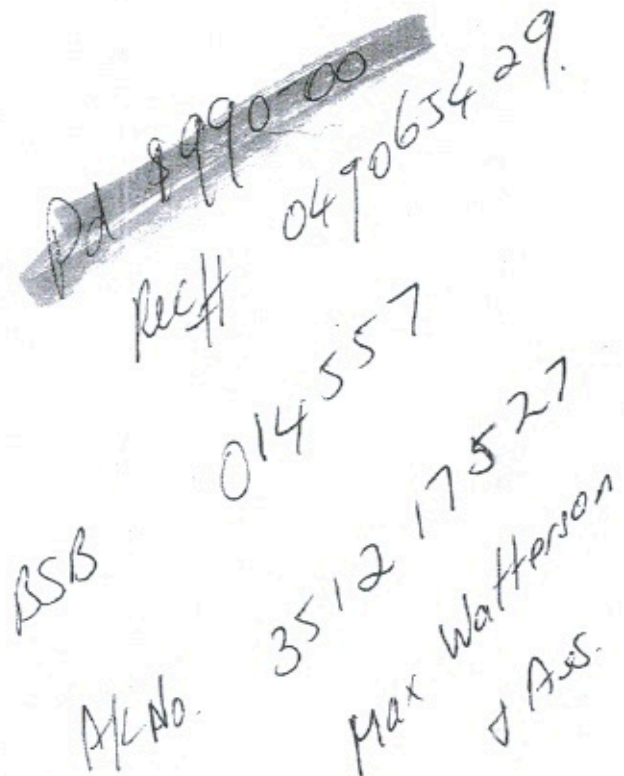 Pd $990-00
Rec# 049065429.
BSB 014557
A/C No. 351217527
Max Watterson
& Ass.